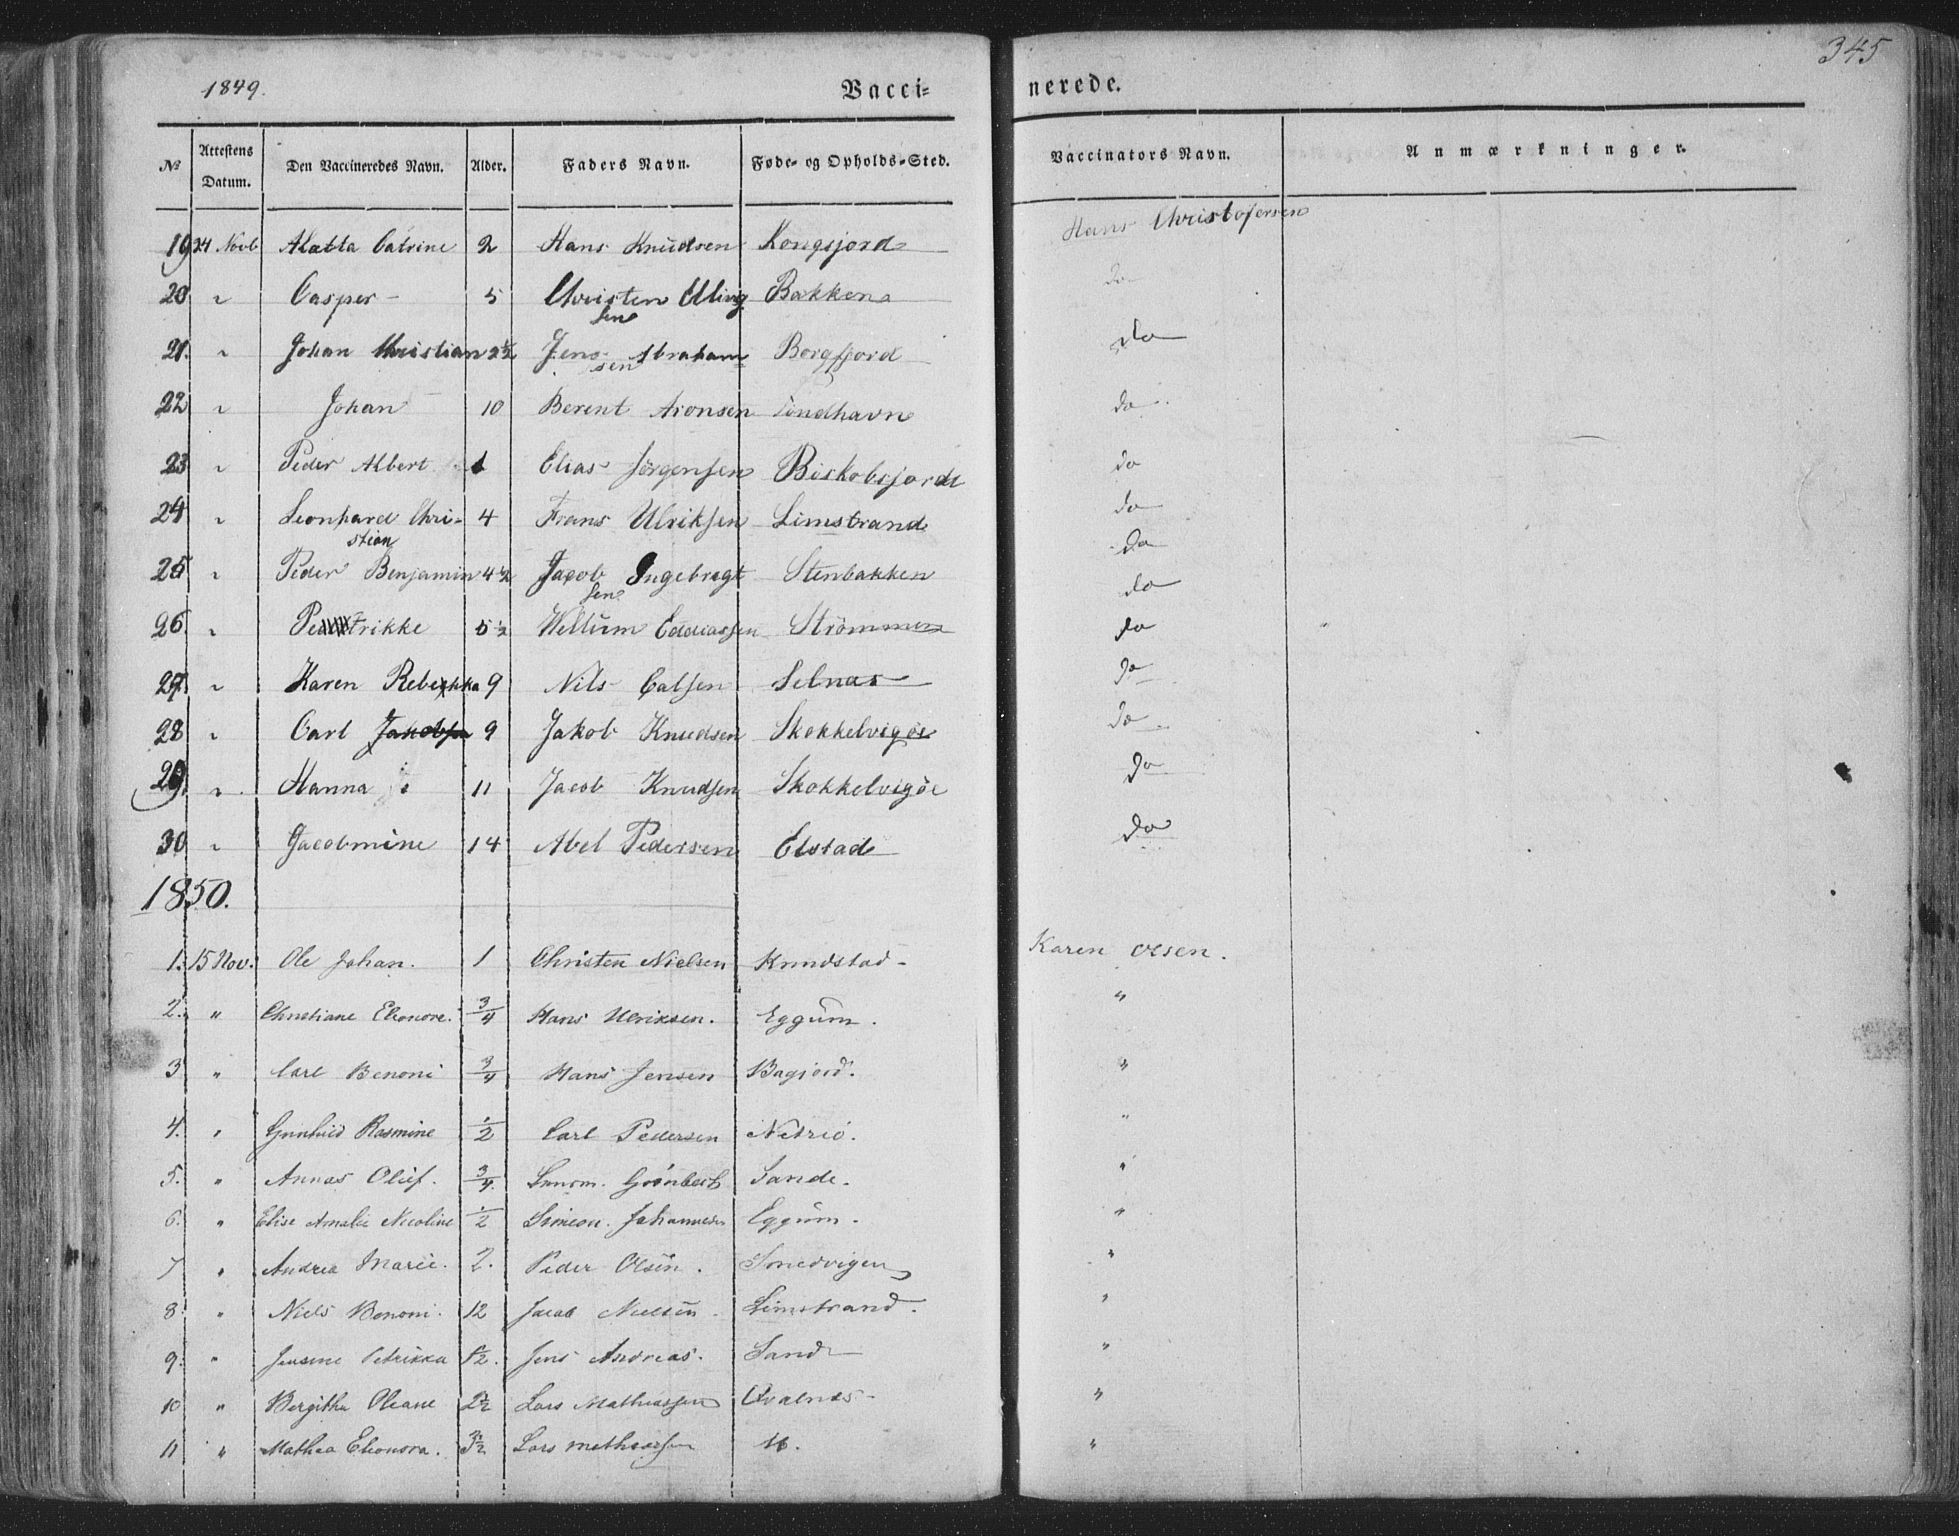 345
1849. Vacci= nerede.
No Attestens Datum. Den Vaccineredes Navn. Alder. Faders Navn. Føde= og Opholds=Sted. Vaccinators Navn. Anmærkninger.
19 24 Novb Catrine 2 Hans Knudsen Kongsjord Hans Christofersen
20 " Casper 5 Christen Bakken do
sen
21. " Johan Christian 2½ Jens Abraham= Borgfjord do
sen
22 " Johan 10 Berent Aronsen Sundhavn do
23 " Peder Albert 1 Elias Jörgensen Biskobsjorde do
24 " Leonhard Chri- 4 Frans Ulriksen Limstrand do
stian do
25 " Peder Benjamin 4½ Jacob Ingebregt Stenbakken do
sen
26. " Petrikke 5½ Wellum Eddiassen Strömmen do
27. " Karen Rebekka 9 Nils Calsen Selnas do
28 " Carl Jakobsen 9 Jakob Knudsen Skokkelvigöe do
29. " Hanna 11 Jacob Knudsen Skokkelvigöe do
30 " Jacobmine 14 Abel Pedersen Elstad do
1850.
1. 15 Nov. Ole Johan. 1 Christen Nielsen Knudstad Karen Olsen.
2. " Christiane Elenore. 3/4 Hans Ulriksen. Eggum. "
3 " Carl Benoni 3/4 Hans Jensen Bagjord. "
4. " Gunhild Rasmine 1/2 Carl Pedersen "
5. " Annas Oluf. 3/4 Grönbech Sande. "
6. " Elise Amalie Nicoline 1/2 Simeon Johannesen Eggum. "
7 " Andrea Marie. 2. Peder Olsen. Smedvigen "
8. " Niels Benoni. 12 Jacob Nielsen. Limstrand. "
9. " Jensine Petrikka 1½. Jens Andreas. Sand "
10 " Bergitha Oleane 2½ Lars Mathiassen Qvalnes "
11 " Mathea Elenora. 3½ Lars Mathiassen "